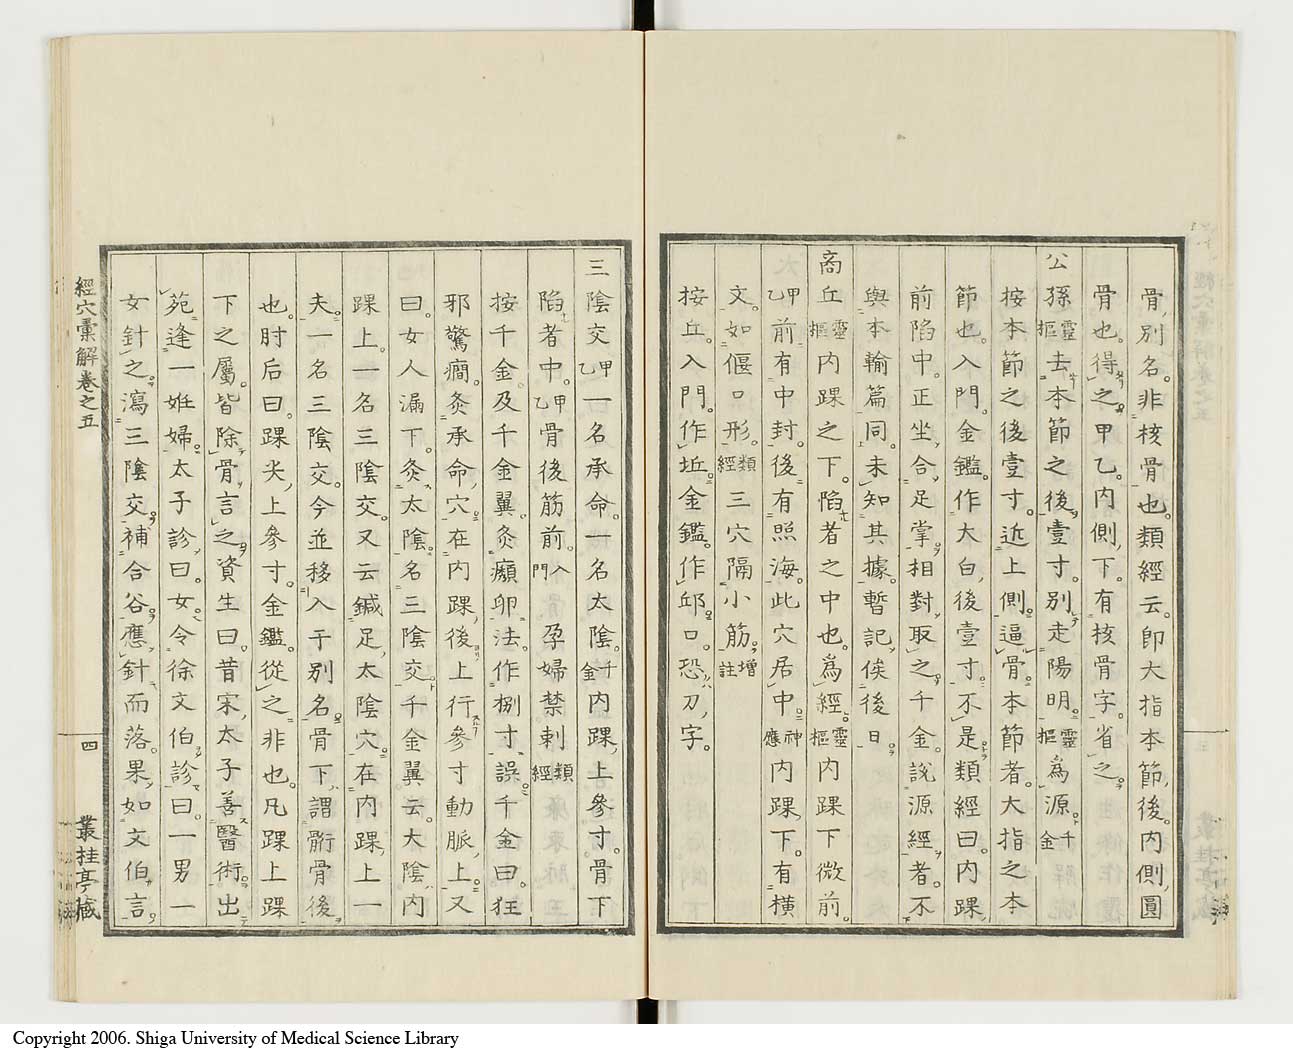 骨別名。非核骨也。類經云。卽大指本節後。内側圓
骨也。得之。甲乙。内側下。有核骨字。省之。
公孫靈樞去本節之後壹寸。別走陽明。靈樞爲源。千金
按本節之後壹寸。近上側。逼骨。本節者。大指之本
節也。入門。金鑑。作大白後壹寸。不是。類經曰。内踝
前陷中。正坐。合足掌相對取之。千金。説源經者。不
與本輸篇同。未知其據。暫記。俟後日。
商丘靈樞内踝之下。陷者之中也。爲經。靈樞内踝下微前。
甲乙前有中封。後有照海。此穴居中。神應内踝下。有橫
文。如偃口形。類經三穴隔小筋。增註
按丘。入門。作坵。金鑑。作邱。口恐刀字。
三陰交甲乙一名承命。一名太陰。千金内踝上參寸。骨下
陷者中。甲乙骨後筋前。入門孕婦禁刺類經
按千金。及千金翼。灸癲卵法。作捌寸誤。千金曰。狂
邪驚癇。灸承命。穴在内踝後上行參寸動脈上。又
曰。女人漏下。灸太陰。名三陰交。千金翼云。大陰内
踝上。一名三陰交。又云鍼足太陰穴。在内踝上一
夫。一名三陰交。今並移入于別名。骨下謂䯒骨後
也。肘后曰。踝尖上參寸。金鑑。從之。非也。凡踝上踝
下之屬。皆除骨言之。資生曰。昔宋太子善醫術。出
苑逢一姙婦。太子診曰。女。令徐文伯診曰。一男一
女針之。瀉三陰交。補合谷。應針而落。果如文伯言。
經穴彙解卷之五
四
叢桂亭藏
Copyright 2006. Shiga University of Medical Science Library